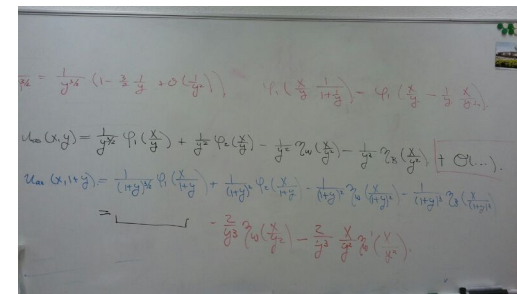 = \frac{1}{y^{3/2}} (1 - \frac{3}{2} \frac{1}{y} + O(\frac{1}{y^2})), φ_1(\frac{x}{y} \frac{1}{1+\frac{1}{y}}) = φ_1(\frac{x}{y} - \frac{1}{y} \frac{x}{y}...
u_∞(x,y) = \frac{1}{y^{3/2}} φ_1(\frac{x}{y}) + \frac{1}{y^2} φ_2(\frac{x}{y}) - \frac{1}{y^2} η_w(\frac{x}{y^2}) - \frac{1}{y^3} η_B(\frac{x}{y^2}) + O(...).
u_∞(x,1+y) = \frac{1}{(1+y)^{3/2}} φ_1(\frac{x}{1+y}) + \frac{1}{(1+y)^2} φ_2(\frac{x}{1+y}) - \frac{1}{(1+y)^2} η_w(\frac{x}{(1+y)^2}) - \frac{1}{(1+y)^3} η_B(\frac{x}{(1+y)^2})
= - \frac{2}{y^3} η_w(\frac{x}{y^2}) - \frac{2}{y^3} \frac{x}{y^2} η_w'(\frac{x}{y^2}).